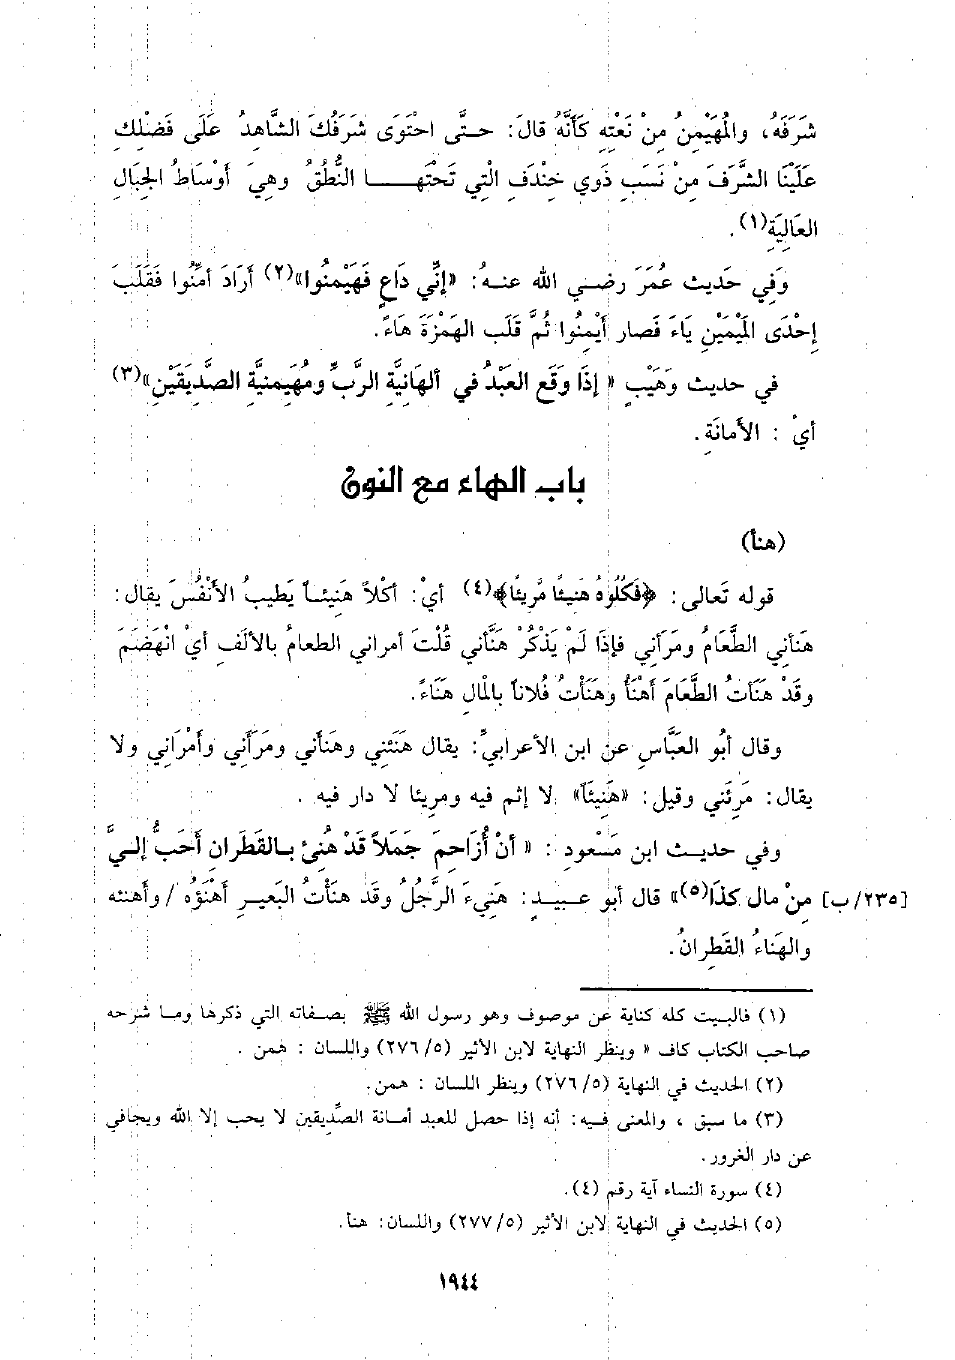 شَرَفَهُ، والمُهَيْمِنُ مِنْ نَعْتِهِ كَأَنَّهُ قالَ: حتَّى احْتَوَى شَرَفُكَ الشَّاهِدُ عَلَى فَضْلِكِ
عَلَيْنَا الشَّرَفَ مِنْ نَسَبِ ذَوي خِنْدَفِ الْتِي تَحْتَهَا النُّطُقُ وهِيَ أوْسَاطُ الجِبَالِ
العَالِيَةِ(١).
وَفِي حَدِيث عُمَرَ رضي الله عنهُ: «إنِّي دَاعٍ فَهَيْمِنُوا»(٢) أرَادَ أمِّنُوا فَقَلَبَ
إحْدَى المِيْمَيْنِ يَاءً فَصار أَيْمِنُوا ثُمَّ قَلَب الهَمْزَةَ هَاءً.
في حديث وَهَيْبٍ « إذَا وَقَع العَبْدُ في ألهَانِيَّة الرَّبِّ ومُهَيمنِيَّة الصِّدِيقَيْنِ»(٣)
أيْ : الأمانَةِ.
باب الهاء مع النون
(هنأ)
قوله تَعالى: ﴿فَكُلُوهُ هَنِيئًا مَّرِيئًا﴾(٤) أيْ: أكْلاً هَنِيئاً يَطيبُ الأَنْفُسَ يقال:
هَنأنِي الطَّعَامُ ومَرَأنِي فإذَا لَمْ يَذْكُرْ هَنَّأني قُلْتَ أمراني الطعامُ بالألَفِ أيْ انْهَضَمَ
وقَدْ هَنَأتُ الطَّعَامَ أهْنَأُ وهَنَأْتُ فُلاناً بالمْالِ هَنَاءً.
وقال أبُو العَبَّاسِ عن ابن الأعرابيِّ: يقال هَنَئنِي وهَنأني ومَرَأنِي وأمْرَانِي ولا
يقال: مَرِئَنِي وقيل: «هَنِيئَاً» لا إثم فيه ومريئا لا دار فيه .
وفي حديث ابن مَسْعودٍ : « أنْ أُزَاحِمَ جَمَلاً قَدْ هُنِئ بالقَطَرِان أحَبُّ إليَّ
[٢٣٥/ب] مِنْ مال كذَا(٥)» قال أبو عبيدٍ: هَنِيءَ الرَّجُلُ وقَد هنأْتُ البَعيرِ أهْنَؤُه / وأهنئه
والهِنَاءُ القَطِرانُ.
(١) فالبيت كله كناية عن موصوف وهو رسول الله ﷺ بصفاته التي ذكرها وما شرحه
صاحب الكتاب كاف « وينظر النهاية لابن الأثير (٢٧٦/٥) واللسان : همن .
(٢) الحديث في النهاية (٢٧٦/٥) وينظر اللسان : همن.
(٣) ما سبق ، والمعنى فيه: أنه إذا حصل للعبد أمانة الصِّديقين لا يحب إلا الله ويجافي
عن دار الغرور.
(٤) سورة النساء آية رقم (٤).
(٥) الحديث في النهاية لابن الأثير (٢٧٧/٥) واللسان: هنأ.
١٩٤٤